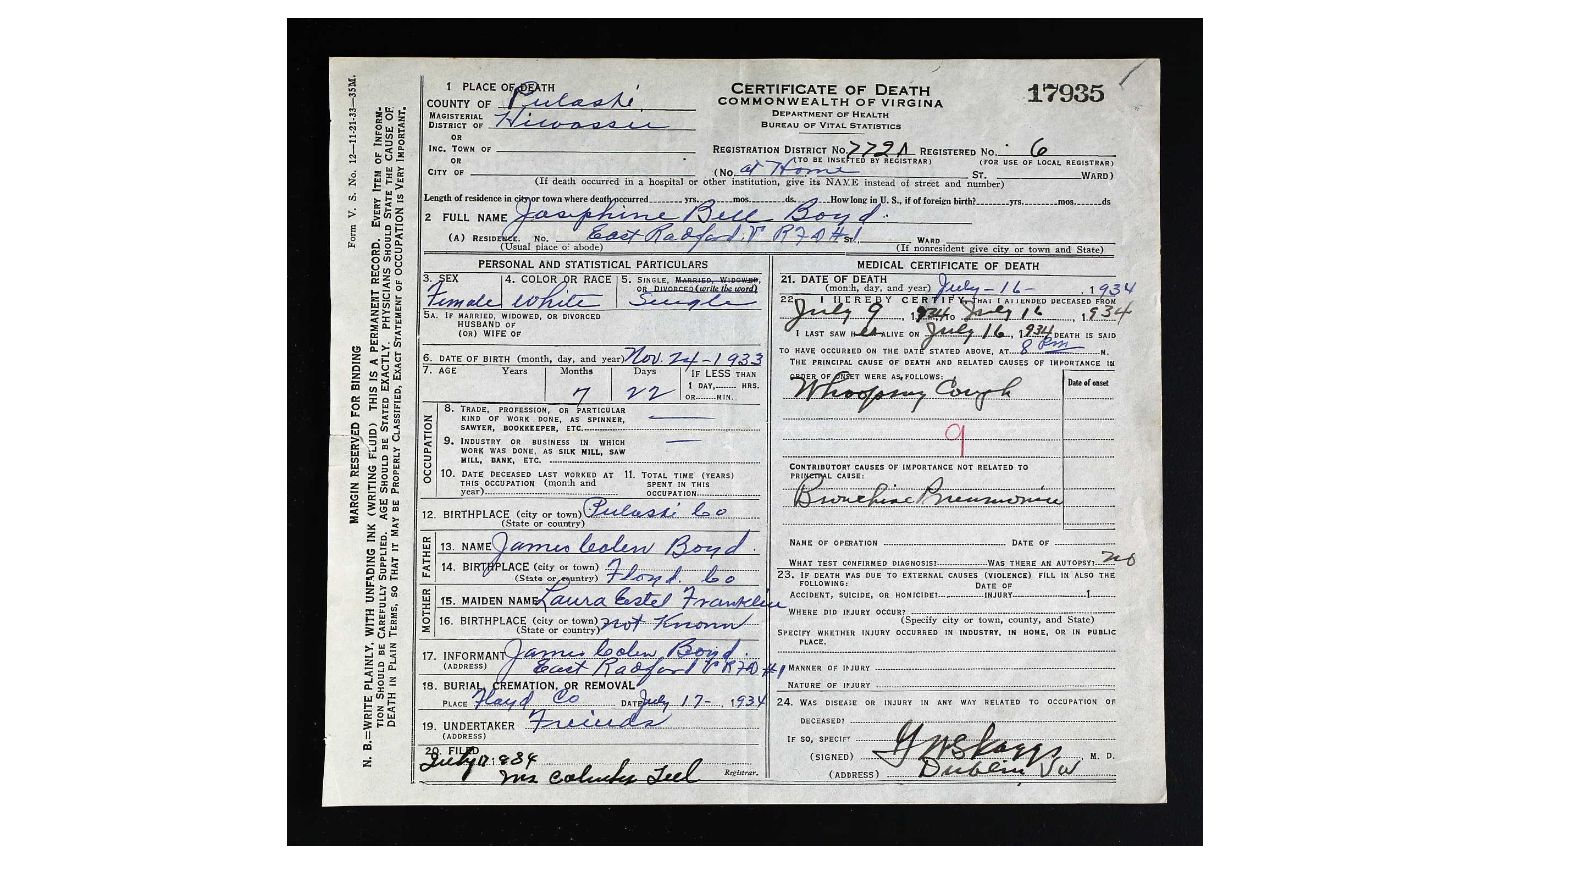 Form V. S. No. 12—11-21-33—35M.
MARGIN RESERVED FOR BINDING
N. B.—WRITE PLAINLY, WITH UNFADING INK (WRITING FLUID) THIS IS A PERMANENT RECORD. EVERY ITEM OF INFORM-
TION SHOULD BE CAREFULLY SUPPLIED. AGE SHOULD BE STATED EXACTLY. PHYSICIANS SHOULD STATE THE CAUSE OF
DEATH IN PLAIN TERMS, SO THAT IT MAY BE PROPERLY CLASSIFIED. EXACT STATEMENT OF OCCUPATION IS VERY IMPORTANT.
1 PLACE OF DEATH
COUNTY OF Pulaski
MAGISTERIAL
DISTRICT OF Hiwassee
OR
INC. TOWN OF
OR
CITY OF
CERTIFICATE OF DEATH
COMMONWEALTH OF VIRGINA
DEPARTMENT OF HEALTH
BUREAU OF VITAL STATISTICS
17935
REGISTRATION DISTRICT No. 772A REGISTERED No. 6
(TO BE INSERTED BY REGISTRAR) (FOR USE OF LOCAL REGISTRAR)
(No. at Home ST. WARD)
(If death occurred in a hospital or other institution, give its NAME instead of street and number)
Length of residence in city or town where death occurred yrs. mos. ds. How long in U. S., if of foreign birth? yrs. mos. ds
2 FULL NAME Josephine Bell Boyd.
(A) RESIDENCE. No. East Radford. V RFD #1 St., WARD
(Usual place of abode) (If nonresident give city or town and State)
PERSONAL AND STATISTICAL PARTICULARS
3. SEX 4. COLOR OR RACE 5. SINGLE, MARRIED, WIDOWED,
OR DIVORCED (write the word)
Female White Single
5A. IF MARRIED, WIDOWED, OR DIVORCED
HUSBAND OF
(OR) WIFE OF
6. DATE OF BIRTH (month, day, and year) Nov. 24-1933
7. AGE Years Months Days IF LESS THAN
1 DAY, HRS.
7 22 OR MIN.
OCCUPATION
8. TRADE, PROFESSION, OR PARTICULAR
KIND OF WORK DONE, AS SPINNER,
SAWYER, BOOKKEEPER, ETC.
9. INDUSTRY OR BUSINESS IN WHICH
WORK WAS DONE, AS SILK MILL, SAW
MILL, BANK, ETC.
10. DATE DECEASED LAST WORKED AT 11. TOTAL TIME (YEARS)
THIS OCCUPATION (month and SPENT IN THIS
year) OCCUPATION
12. BIRTHPLACE (city or town) Pulaski Co
(State or country)
FATHER
13. NAME James Colen Boyd.
14. BIRTHPLACE (city or town) Floyd. Co
(State or country)
MOTHER
15. MAIDEN NAME Laura Estel Franklin
16. BIRTHPLACE (city or town) not Known
(State or country)
17. INFORMANT James Colen Boyd.
(ADDRESS) East Radford V RFD #1
18. BURIAL, CREMATION, OR REMOVAL
PLACE Floyd Co DATE July 17-, 1934
19. UNDERTAKER Freinds
(ADDRESS)
20. FILED
July 17 1934
Mrs Teel Registrar.
MEDICAL CERTIFICATE OF DEATH
21. DATE OF DEATH
(month, day, and year) July-16-, 1934
22. I HEREBY CERTIFY, THAT I ATTENDED DECEASED FROM
July 9, 1934 TO July 16, 1934
I LAST SAW HER ALIVE ON July 16, 1934 DEATH IS SAID
TO HAVE OCCURRED ON THE DATE STATED ABOVE, AT 8 Pm M.
THE PRINCIPAL CAUSE OF DEATH AND RELATED CAUSES OF IMPORTANCE IN
ORDER OF ONSET WERE AS FOLLOWS: Date of onset
Whooping Cough
9
CONTRIBUTORY CAUSES OF IMPORTANCE NOT RELATED TO
PRINCIPAL CAUSE:
Bronchial Pneumonia
NAME OF OPERATION DATE OF
WHAT TEST CONFIRMED DIAGNOSIS? WAS THERE AN AUTOPSY? no
23. IF DEATH WAS DUE TO EXTERNAL CAUSES (VIOLENCE) FILL IN ALSO THE
FOLLOWING: DATE OF
ACCIDENT, SUICIDE, OR HOMICIDE? INJURY 1
WHERE DID INJURY OCCUR?
(Specify city or town, county, and State)
SPECIFY WHETHER INJURY OCCURRED IN INDUSTRY, IN HOME, OR IN PUBLIC
PLACE.
MANNER OF INJURY
NATURE OF INJURY
24. WAS DISEASE OR INJURY IN ANY WAY RELATED TO OCCUPATION OF
DECEASED?
IF SO, SPECIFY
(SIGNED) G W Skaggs, M. D.
(ADDRESS) Dublin, Va